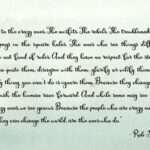 to the crazy ones. The misfits. The rebels. The troublemak
pegs in the square holes. The ones who see things diff
not fond of rules. And they have no respect for the sta
quote them, disagree with them, glorify or vilify them
thing you can't do is ignore them. Because they change
the human race forward. And while some may see
crazy ones, we see genius. Because the people who are crazy
they can change the world, are the ones who do."
- Rob